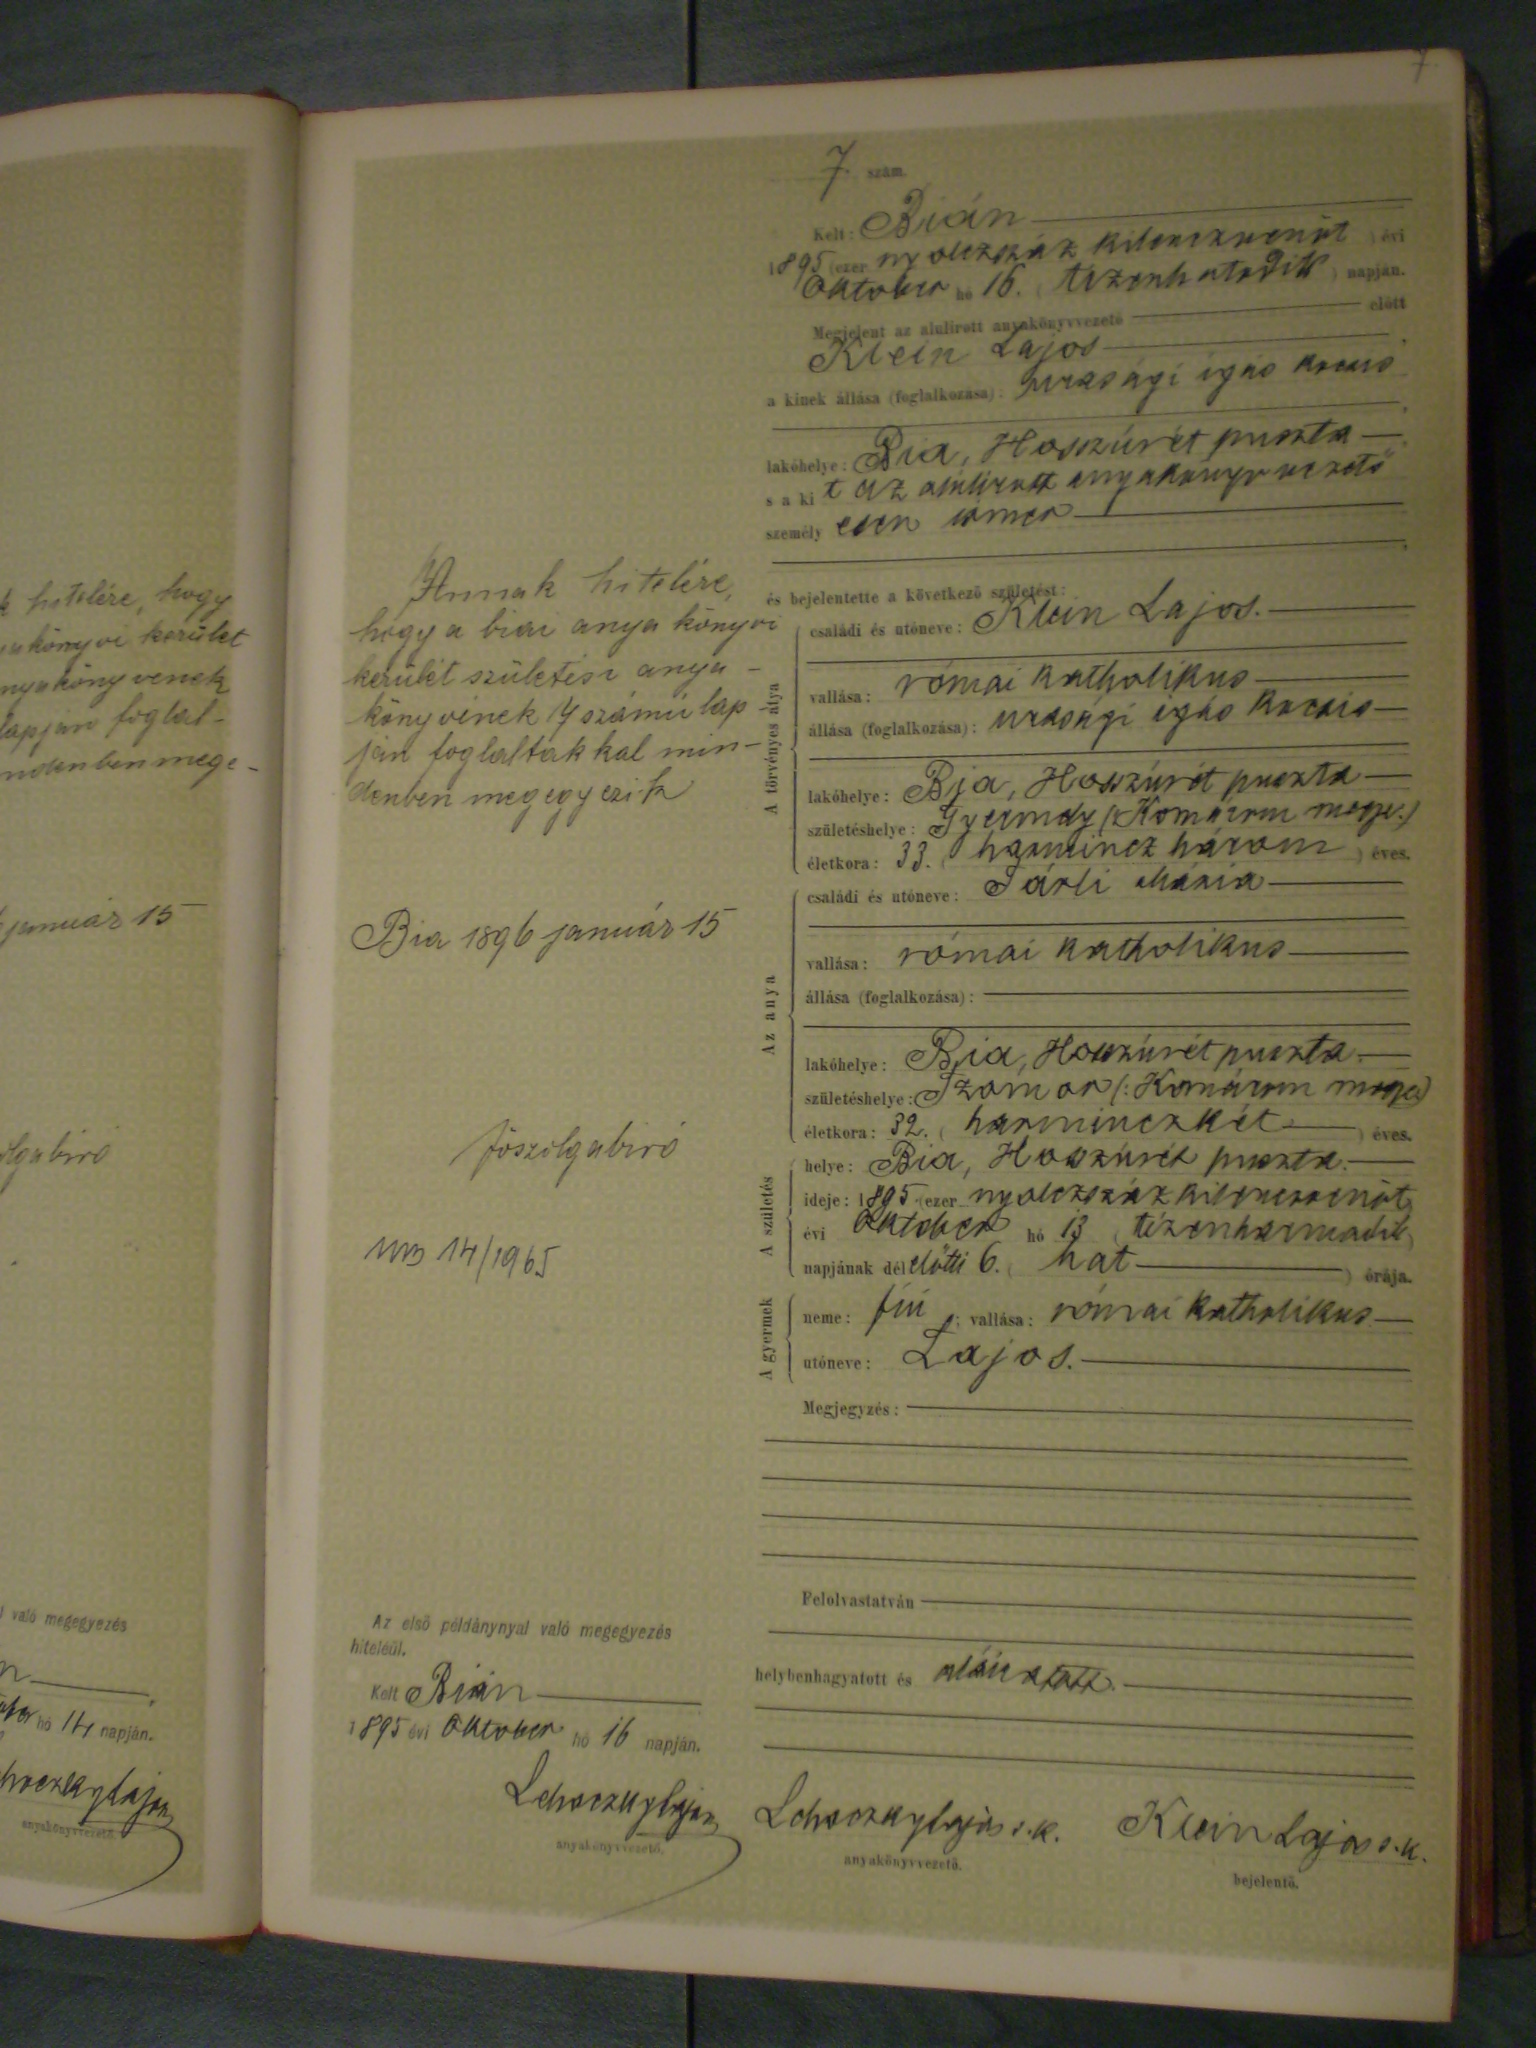 7
7. szám.
Kelt: Bián
1895 (ezer nyolczszáz kilenczvenöt) évi
Oktober hó 16. (tizenhatodik) napján.
Megjelent az alulirott anyakönyvvezető előtt
Klein Lajos
a kinek állása (foglalkozása): urasági igás kocsis
lakóhelye: Bia, Hosszúrét puszta
s a kit az alulirott anyakönyvvezető
személyesen ismer
és bejelentette a következő születést:
A törvényes atya
családi és utóneve: Klein Lajos.
vallása: római katholikus
állása (foglalkozása): urasági igás kocsis
lakóhelye: Bia, Hosszúrét puszta
születéshelye: Gyermely (Komárom megye)
életkora: 33. (harmincz három) éves.
Az anya
családi és utóneve: Tárli Mária
vallása: római katholikus
állása (foglalkozása):
lakóhelye: Bia, Hosszúrét puszta
születéshelye: Szomor (: Komárom megye)
életkora: 32. (harminczkét) éves.
A születés
helye: Bia, Hosszúrét puszta.
ideje: 1895 (ezer nyolczszáz kilenczvenöt)
évi Oktober hó 13 (tizenharmadik)
napjának délelőtti 6. (hat) órája.
A gyermek
neme: fiú; vallása: római katholikus
utóneve: Lajos.
Megjegyzés:
Felolvastatván
helybenhagyatott és aláiratott.
Lehoczky Lajos s.k.
anyakönyvvezető.
Klein Lajos s.k.
bejelentő.
Annak hitelére,
hogy a biai anyakönyvi
kerület születési anya-
könyvének 7 számú lap
ján foglaltakkal min-
denben megegyezik
Bia 1896 január 15
főszolgabiró
14/1965
Az első példánynyal való megegyezés
hiteléül.
Kelt Bián
1895 évi Oktober hó 16 napján.
Lehoczky Lajos
anyakönyvvezető.
k hitelére, hogy
akönyvi kerület
nyakönyvenek
lapján foglal-
ndenben mege-
január 15
olgabiró
l való megegyezés
n
hó 14 napján.
hoczky Lajos
anyakönyvvezető.